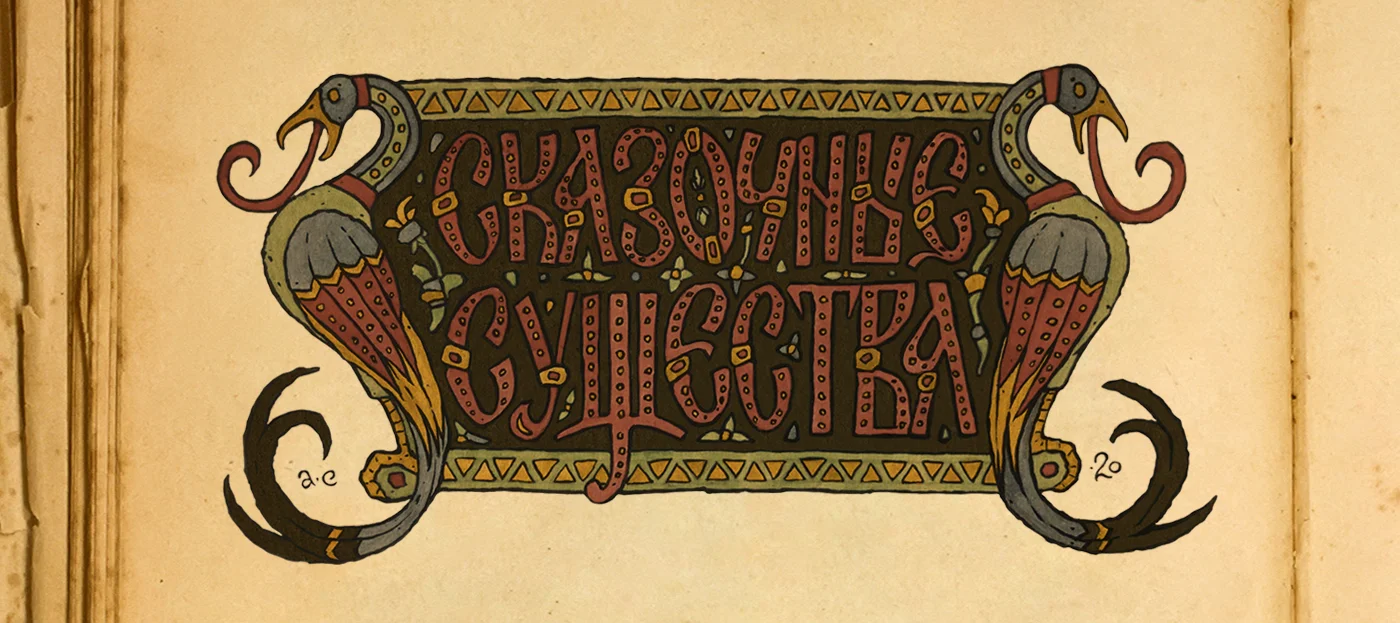 СКАЗОЧНЫЕ
СУЩЕСТВА
а·е ·20